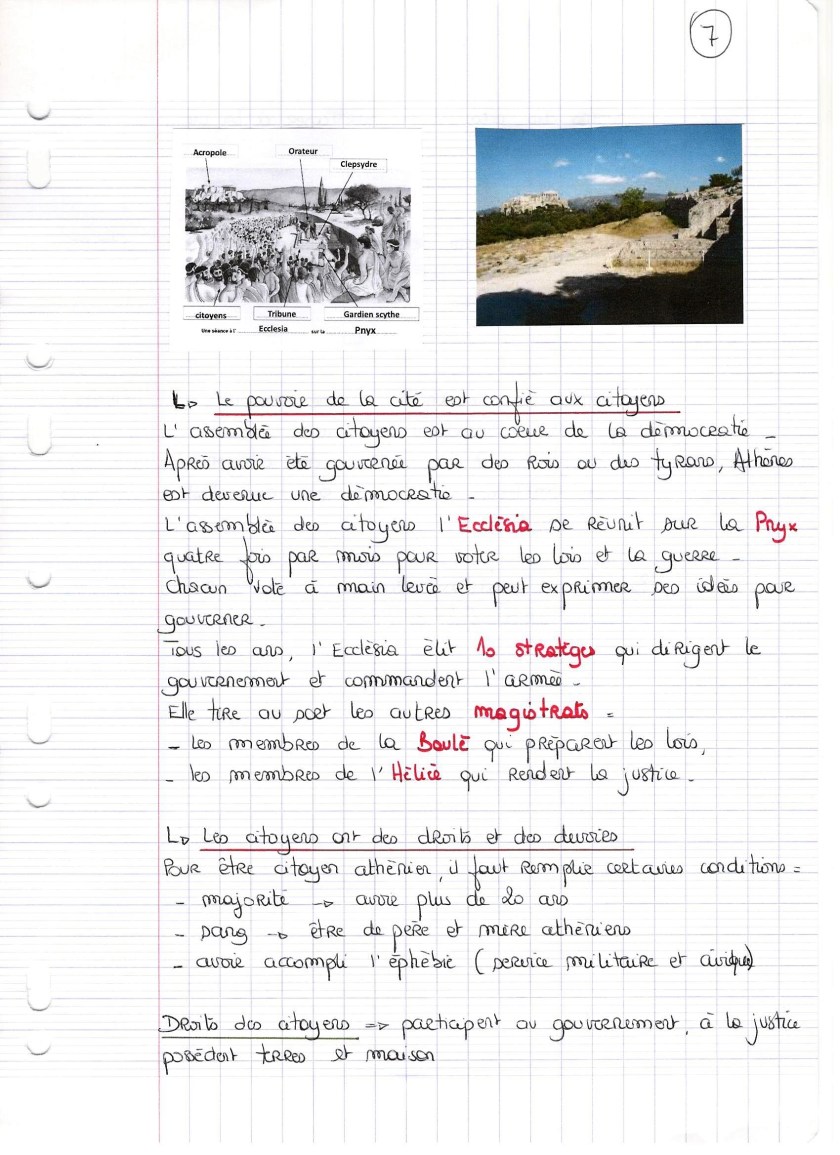 7
Acropole
Orateur
Clepsydre
citoyens
Tribune
Gardien scythe
Une séance à l' Ecclesia sur la Pnyx
L> Le pouvoir de la cité est confié aux citoyens
L'assemblée des citoyens est au coeur de la démocratie.
Après avoir été gouvernée par des Rois ou des tyrans, Athènes
est devenue une démocratie.
L'assemblée des citoyens l'Ecclésia se réunit sur la Pnyx
quatre fois par mois pour voter les lois et la guerre.
Chacun vote à main levée et peut exprimer ses idées pour
gouverner.
Tous les ans, l'Ecclésia élit 10 stratèges qui dirigent le
gouvernement et commandent l'armée.
Elle tire au sort les autres magistrats =
- les membres de la Boulè qui préparent les lois,
- les membres de l'Héliée qui rendent la justice.
L> Les citoyens ont des droits et des devoirs
Pour être citoyen athénien, il faut remplir certaines conditions =
- majorité -> avoir plus de 20 ans
- sang -> être de père et mère athéniens
- avoir accompli l'éphébie (service militaire et civique)
Droits des citoyens => participent au gouvernement, à la justice
possèdent terres et maison